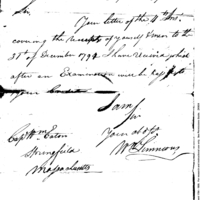 Sir
Your letter of the 4th Inst.
covering the receipts of yourself & men to the
31st of December 1794 I have received which
after an Examination will be kept to
your Credit
I am
Sir
Your Ob. St.
Wm Simmons
Capt. Wm Eaton
Springfield
Massachusetts